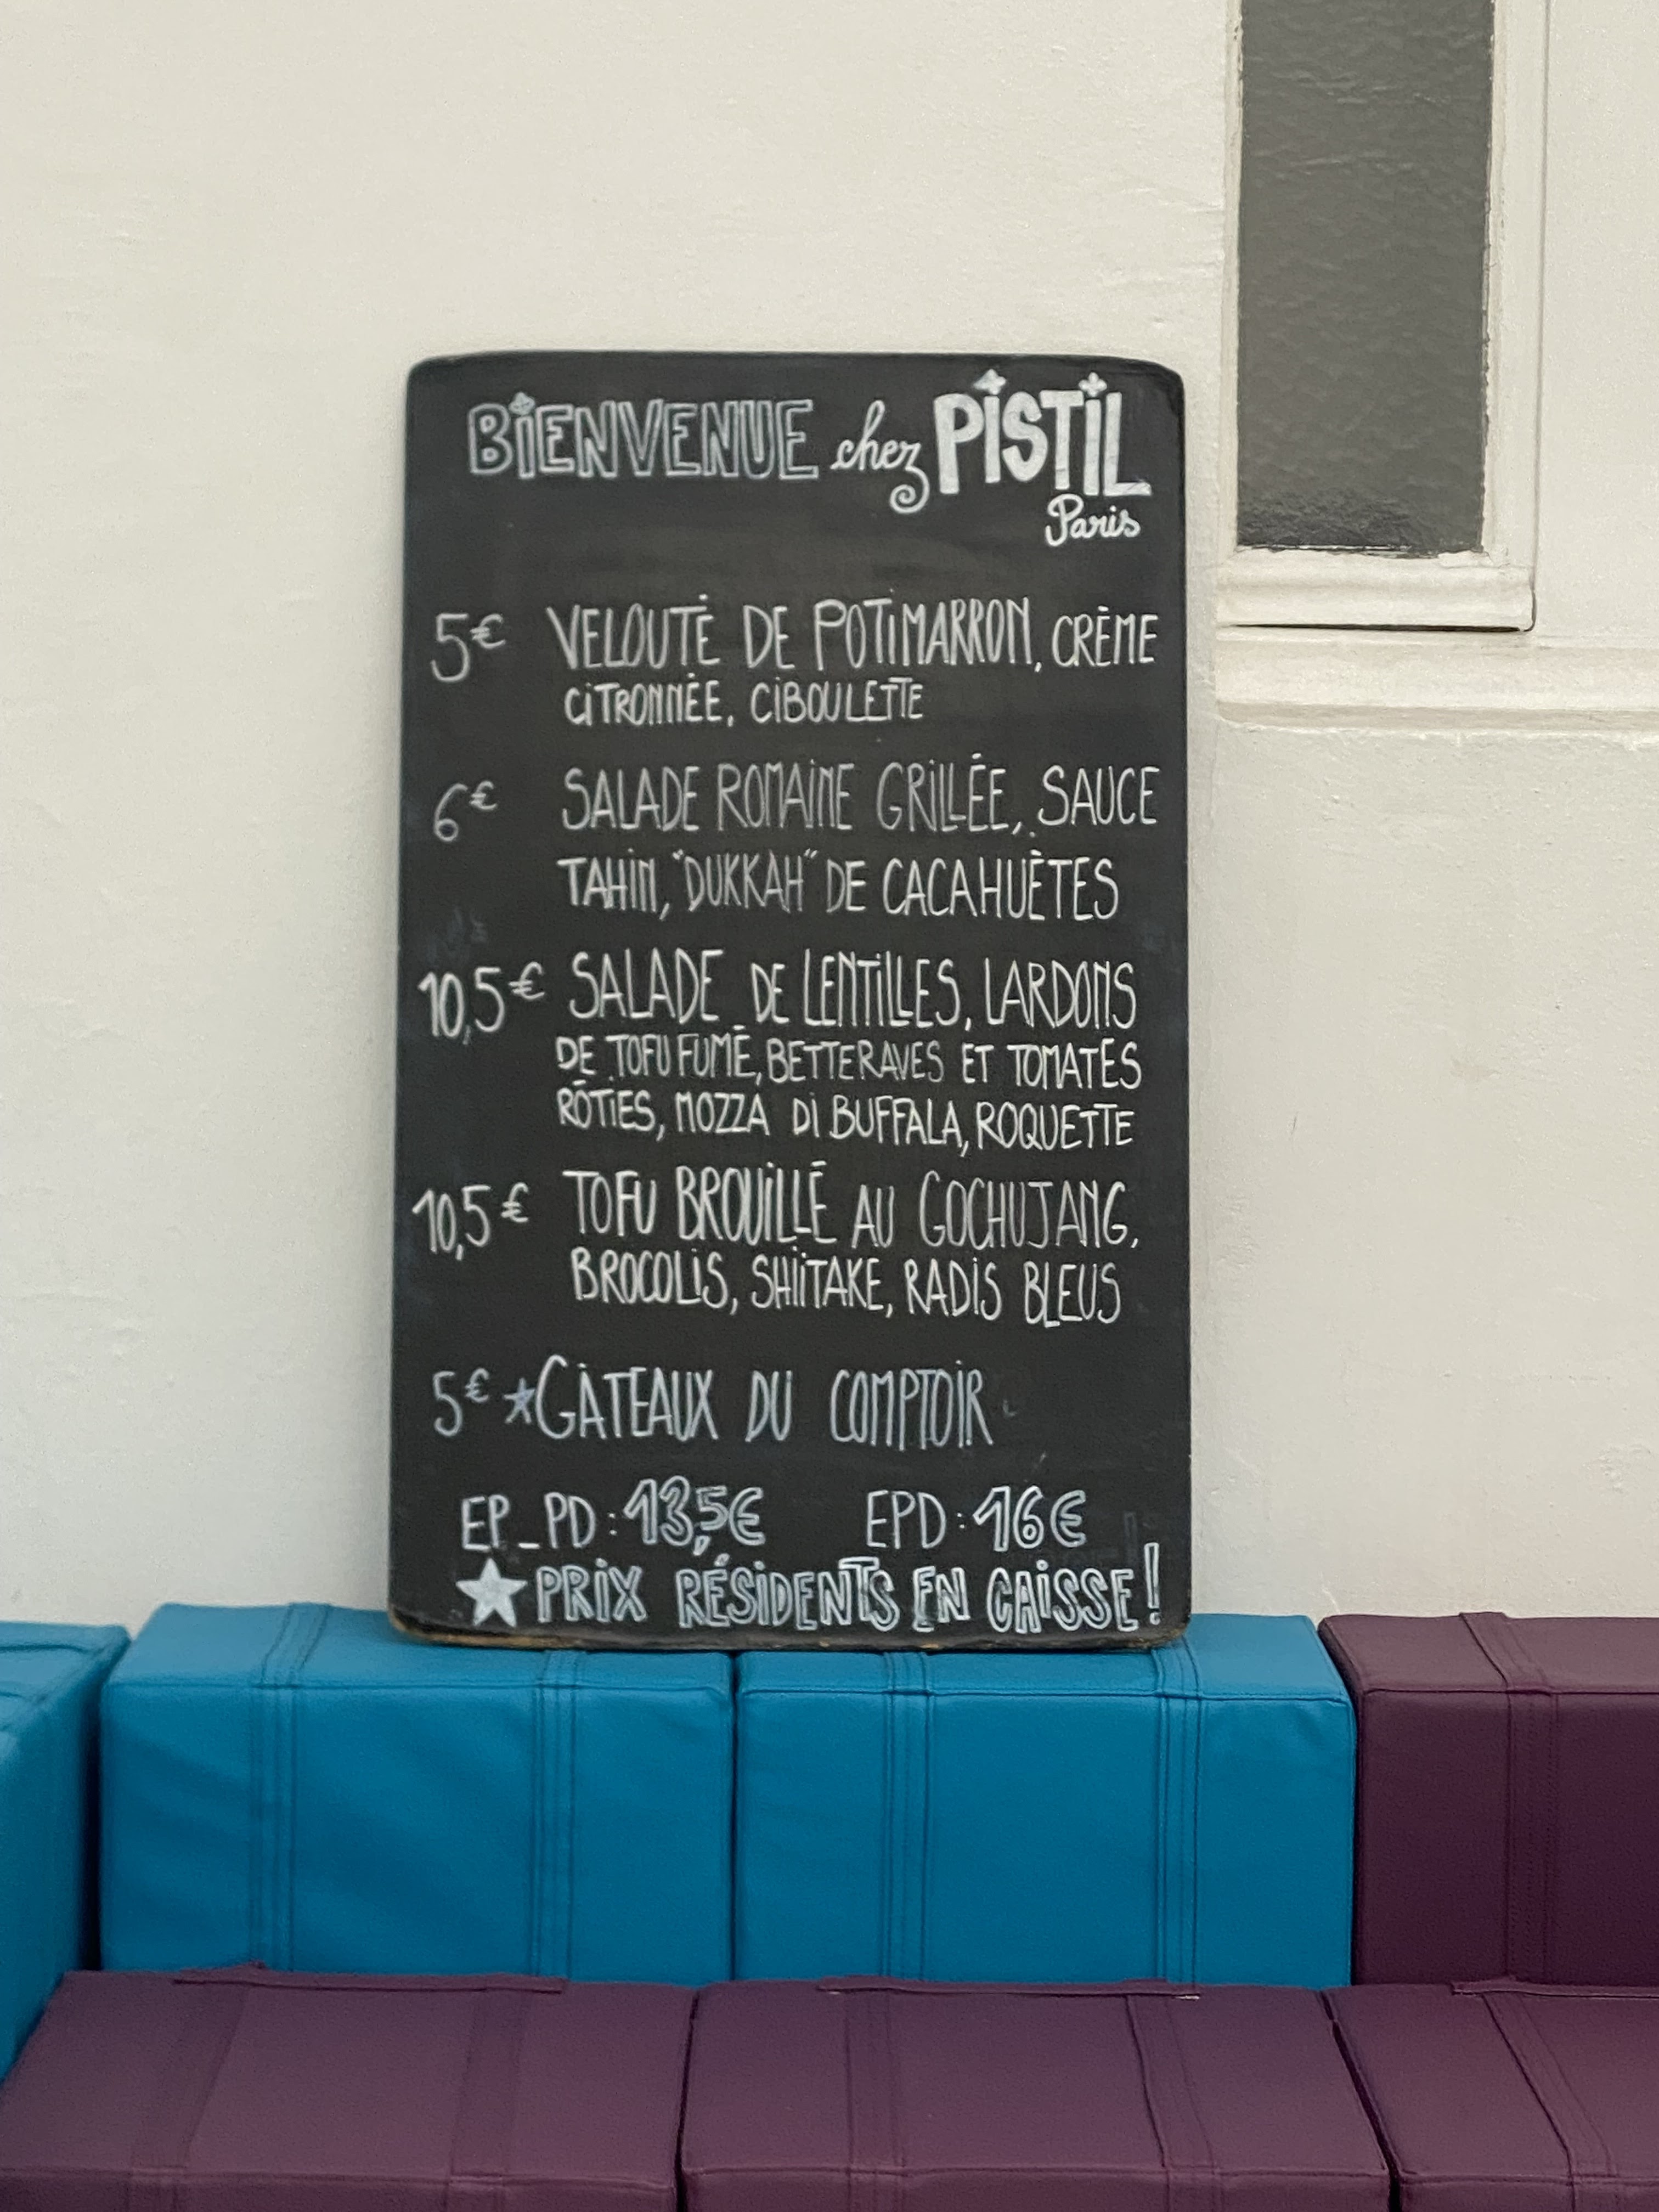 BIENVENUE chez PISTIL
Paris
5€ VELOUTÉ DE POTIMARRON, CRÈME
CITRONNÉE, CIBOULETTE
6€ SALADE ROMAINE GRILLÉE, SAUCE
TAHIN, "DUKKAH" DE CACAHUÈTES
10,5€ SALADE DE LENTILLES, LARDONS
DE TOFU FUMÉ, BETTERAVES ET TOMATES
RÔTIES, MOZZA DI BUFFALA, ROQUETTE
10,5€ TOFU BROUILLÉ AU GOCHUJANG,
BROCOLIS, SHIITAKE, RADIS BLEUS
5€ ★GÂTEAUX DU COMPTOIR
EP_PD: 13,5€ EPD: 16€
★PRIX RÉSIDENTS EN CAISSE!